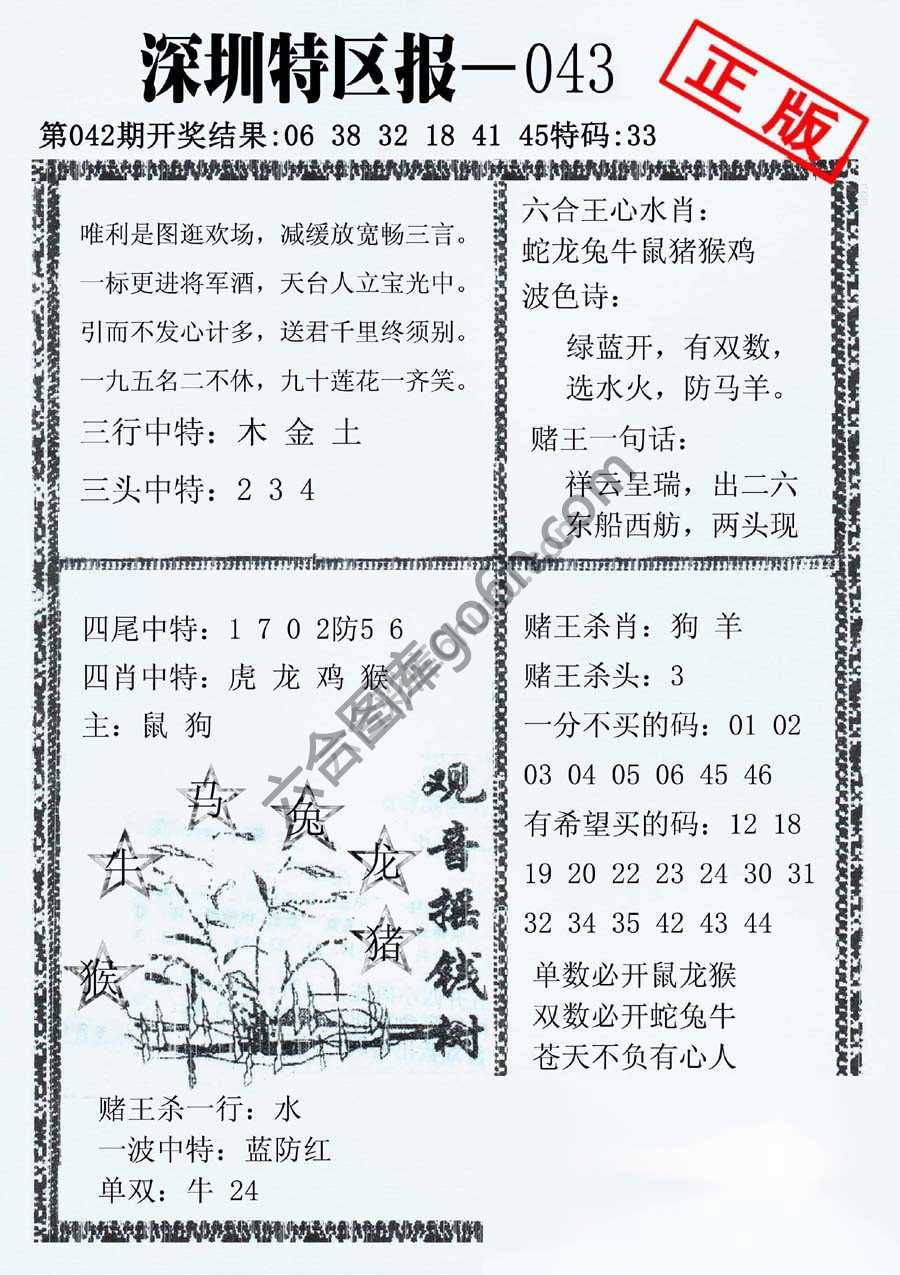 深圳特区报—043
正版
第042期开奖结果:06 38 32 18 41 45特码:33
唯利是图逛欢场，减缓放宽畅三言。
一标更进将军酒，天台人立宝光中。
引而不发心计多，送君千里终须别。
一九五名二不休，九十莲花一齐笑。
三行中特：木 金 土
三头中特：2 3 4
六合王心水肖：
蛇龙兔牛鼠猪猴鸡
波色诗：
绿蓝开，有双数，
选水火，防马羊。
赌王一句话：
祥云呈瑞，出二六
东船西舫，两头现
四尾中特：1 7 0 2防5 6
四肖中特：虎 龙 鸡 猴
主：鼠 狗
马
兔
牛
龙
猪
猴
观音摇钱树
赌王杀一行：水
一波中特：蓝防红
单双：牛 24
赌王杀肖：狗 羊
赌王杀头：3
一分不买的码：01 02
03 04 05 06 45 46
有希望买的码：12 18
19 20 22 23 24 30 31
32 34 35 42 43 44
单数必开鼠龙猴
双数必开蛇兔牛
苍天不负有心人